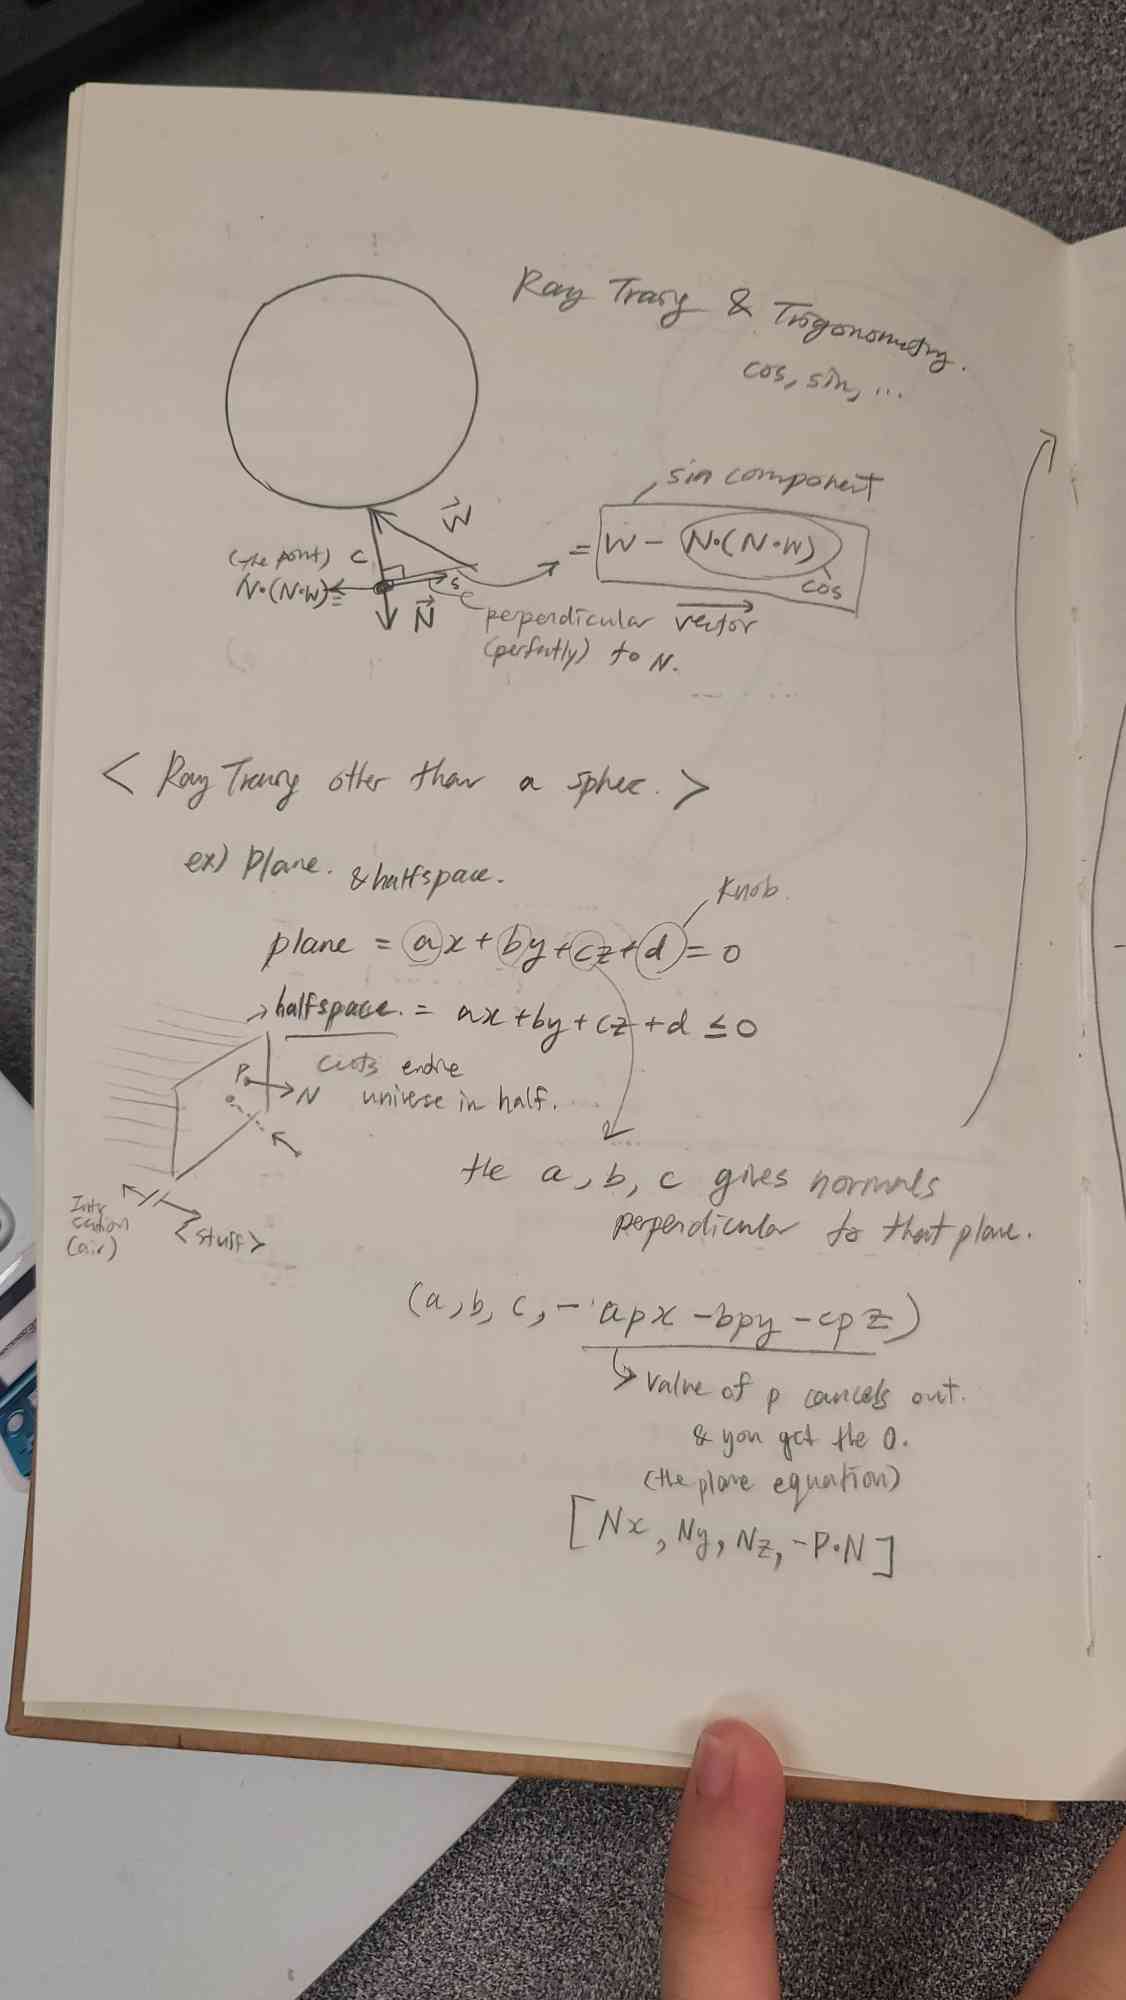 Ray Tracing & Trigonometry.
cos, sin, ...
sin component
W
(the point) C
N•(N•W) =
S
N
= W - N•(N•W)
cos
perpendicular vector
(perfectly) to N.
< Ray Tracing other than a sphere. >
ex) Plane. & halfspace.
Knob.
plane = ax + by + cz + d = 0
halfspace. = ax + by + cz + d ≤ 0
cuts entire
universe in half.
P
N
the a, b, c gives normals
perpendicular to that plane.
(air)
<stuff>
(a, b, c, - apx - bpy - cpz)
value of p cancels out.
& you get the 0.
(the plane equation)
[Nx, Ny, Nz, -P•N]